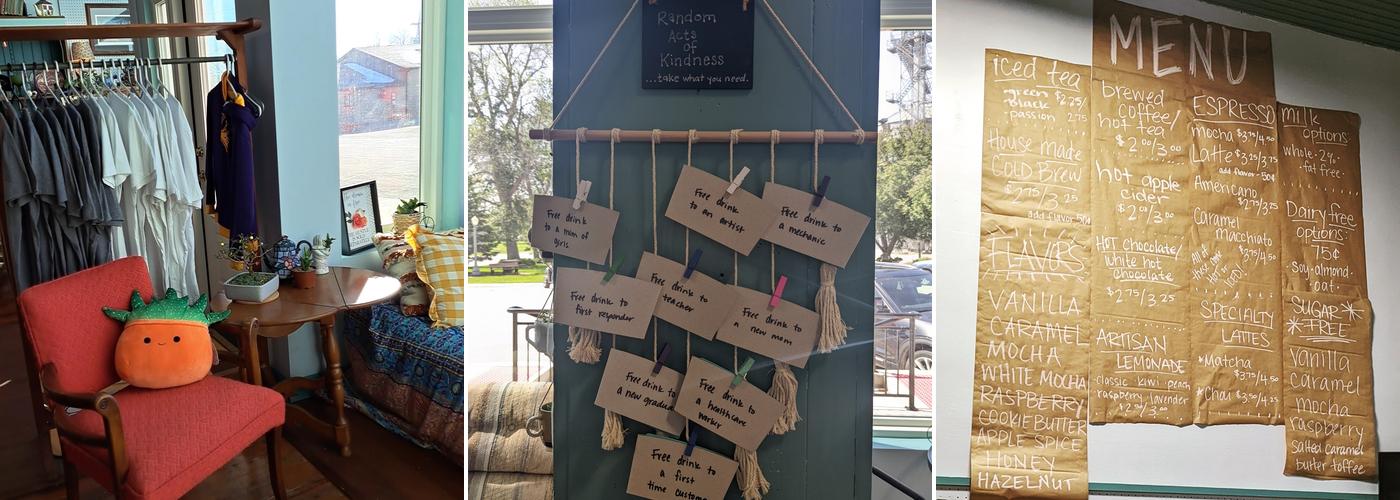 Random
Acts
of
Kindness
...take what you need.
Free drink
to a mom of
girls
Free drink
to an artist
Free drink to
a mechanic
Free drink to
first responder
Free drink to
teacher
Free drink to
a new mom
Free drink to
a new graduate
Free drink to
a healthcare
worker
Free drink to
a first
time customer
MENU
iced tea
green $2.25/
black 2.75
passion
House made
COLD BREW
$2.75/3.25
add flavor 50¢
FLAVORS
VANILLA
CARAMEL
MOCHA
WHITE MOCHA
RASPBERRY
COOKIE BUTTER
APPLE SPICE
HONEY
HAZELNUT
brewed
coffee/
hot tea
$2.00/3.00
hot apple
cider
$2.00/3.00
HOT chocolate/
white hot
chocolate
$2.75/3.25
ARTISAN
LEMONADE
classic kiwi peach
raspberry lavender
$2.50/3.00
ESPRESSO
mocha $3.75/4.50
Latte $3.25/3.75
add flavor 50¢
Americano
$2.75/3.25
Caramel
macchiato
$3.75/4.50
SPECIALTY
LATTES
*Matcha
$3.75/4.50
*Chai $3.50/4.25
milk
options:
whole·2%·
·fat free·
Dairy free
options:
75¢
·soy·almond·
·oat·
SUGAR
*FREE*
vanilla
caramel
mocha
raspberry
salted caramel
butter toffee